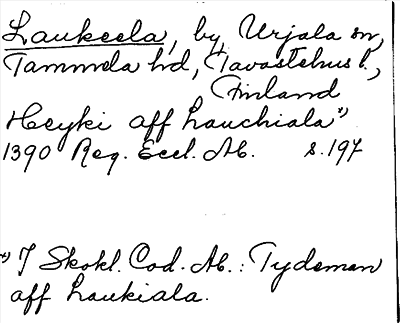 Laukeela, by, Urjala sn,
Tammela hd, Tavastehus l.,
Finland
Heyki aff Lauchiala*)
1390 Reg. Eccl. Ab. s. 197
*) I Skokl. Cod. Ab.: Tydeman
aff Laukiala.